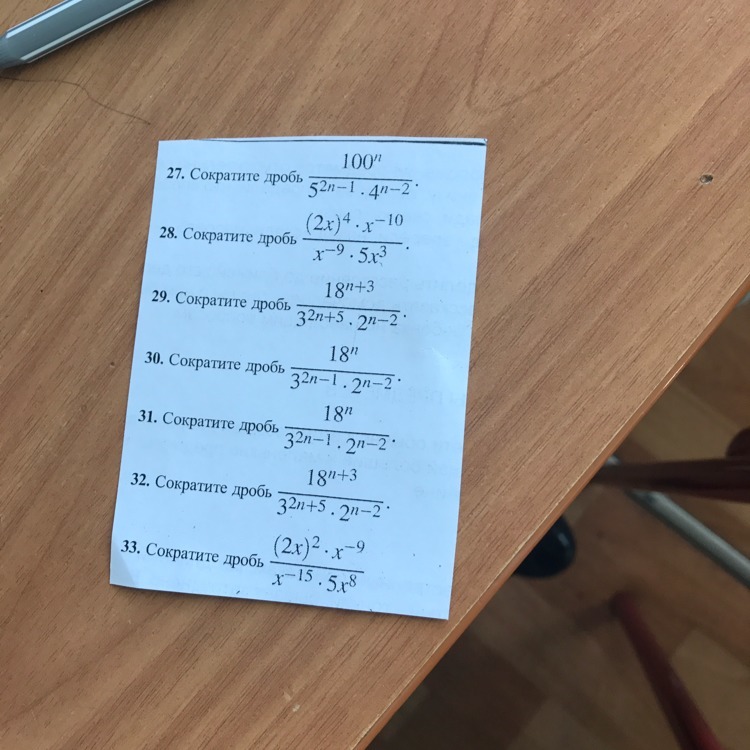 27. Сократите дробь 100ⁿ / (5²ⁿ⁻¹ · 4ⁿ⁻²).
28. Сократите дробь (2x)⁴ · x⁻¹⁰ / (x⁻⁹ · 5x³).
29. Сократите дробь 18ⁿ⁺³ / (3²ⁿ⁺⁵ · 2ⁿ⁻²).
30. Сократите дробь 18ⁿ / (3²ⁿ⁻¹ · 2ⁿ⁻²).
31. Сократите дробь 18ⁿ / (3²ⁿ⁻¹ · 2ⁿ⁻²).
32. Сократите дробь 18ⁿ⁺³ / (3²ⁿ⁺⁵ · 2ⁿ⁻²).
33. Сократите дробь (2x)² · x⁻⁹ / (x⁻¹⁵ · 5x⁸)